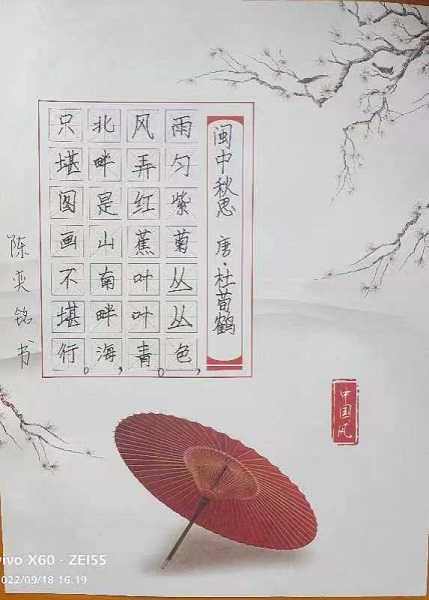 闽中秋思 唐·杜荀鹤
雨匀紫菊丛丛色,
风弄红蕉叶叶青。
北畔是山南畔海,
只堪图画不堪行。
陈奕铭书
中国风
vivo X60 · ZEISS
2022/09/18 16:19